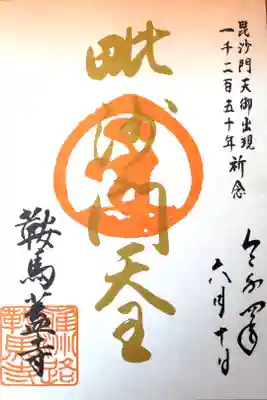 毘沙門天御出現
一千二百五十年 祈念
令和四年
六月十日
毗沙門天王
鞍馬蓋寺